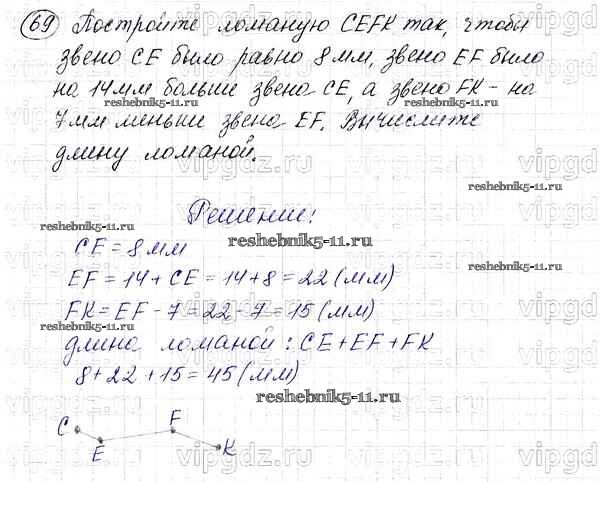 69 Постройте ломаную CEFK так, чтобы
звено CE было равно 8 мм, звено EF было
на 14 мм больше звена CE, а звено FK - на
reshebnik5-11.ru
7 мм меньше звена EF. Вычислите
reshebnik5-11.ru
длину ломаной.
vipgdz.ru
reshebnik5-11.ru
Решение:
reshebnik5-11.ru
CE = 8 мм
EF = 14 + CE = 14 + 8 = 22 (мм)
FK = EF - 7 = 22 - 7 = 15 (мм)
reshebnik5-11.ru
reshebnik5-11.ru
длина ломаной: CE + EF + FK
8 + 22 + 15 = 45 (мм)
reshebnik5-11.ru
C E F K
vipgdz.ru